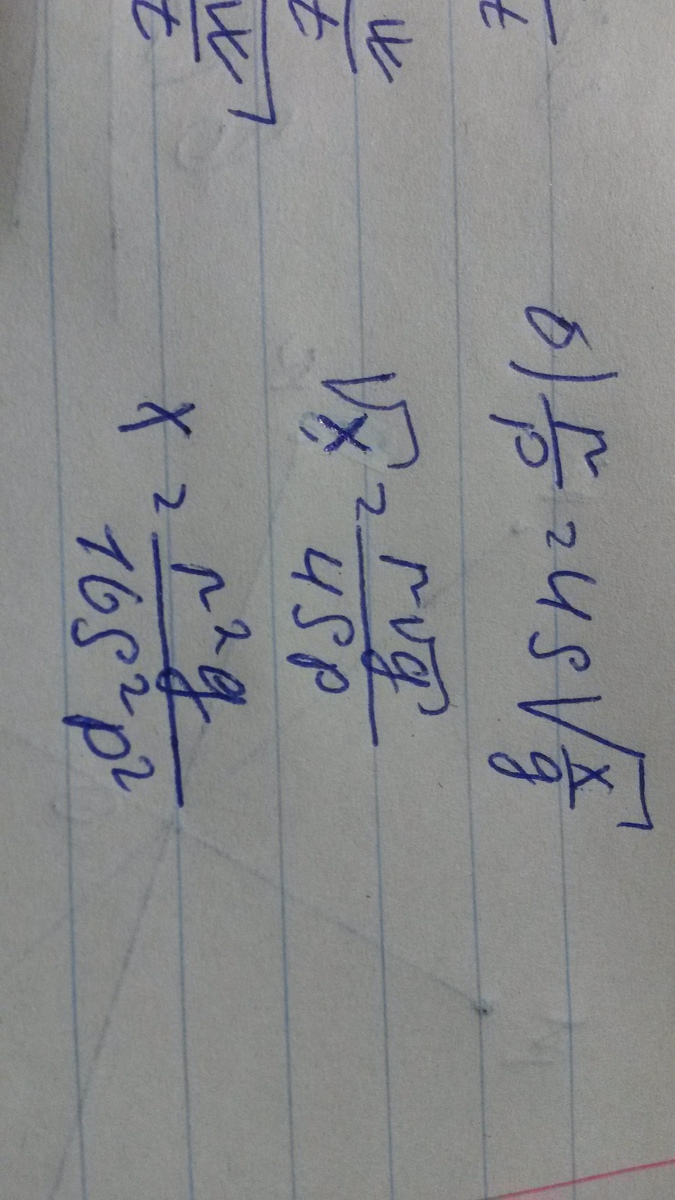 б) r/p = 4S√(x/g)
√x = r√g/4Sp
x = r²g/16S²p²